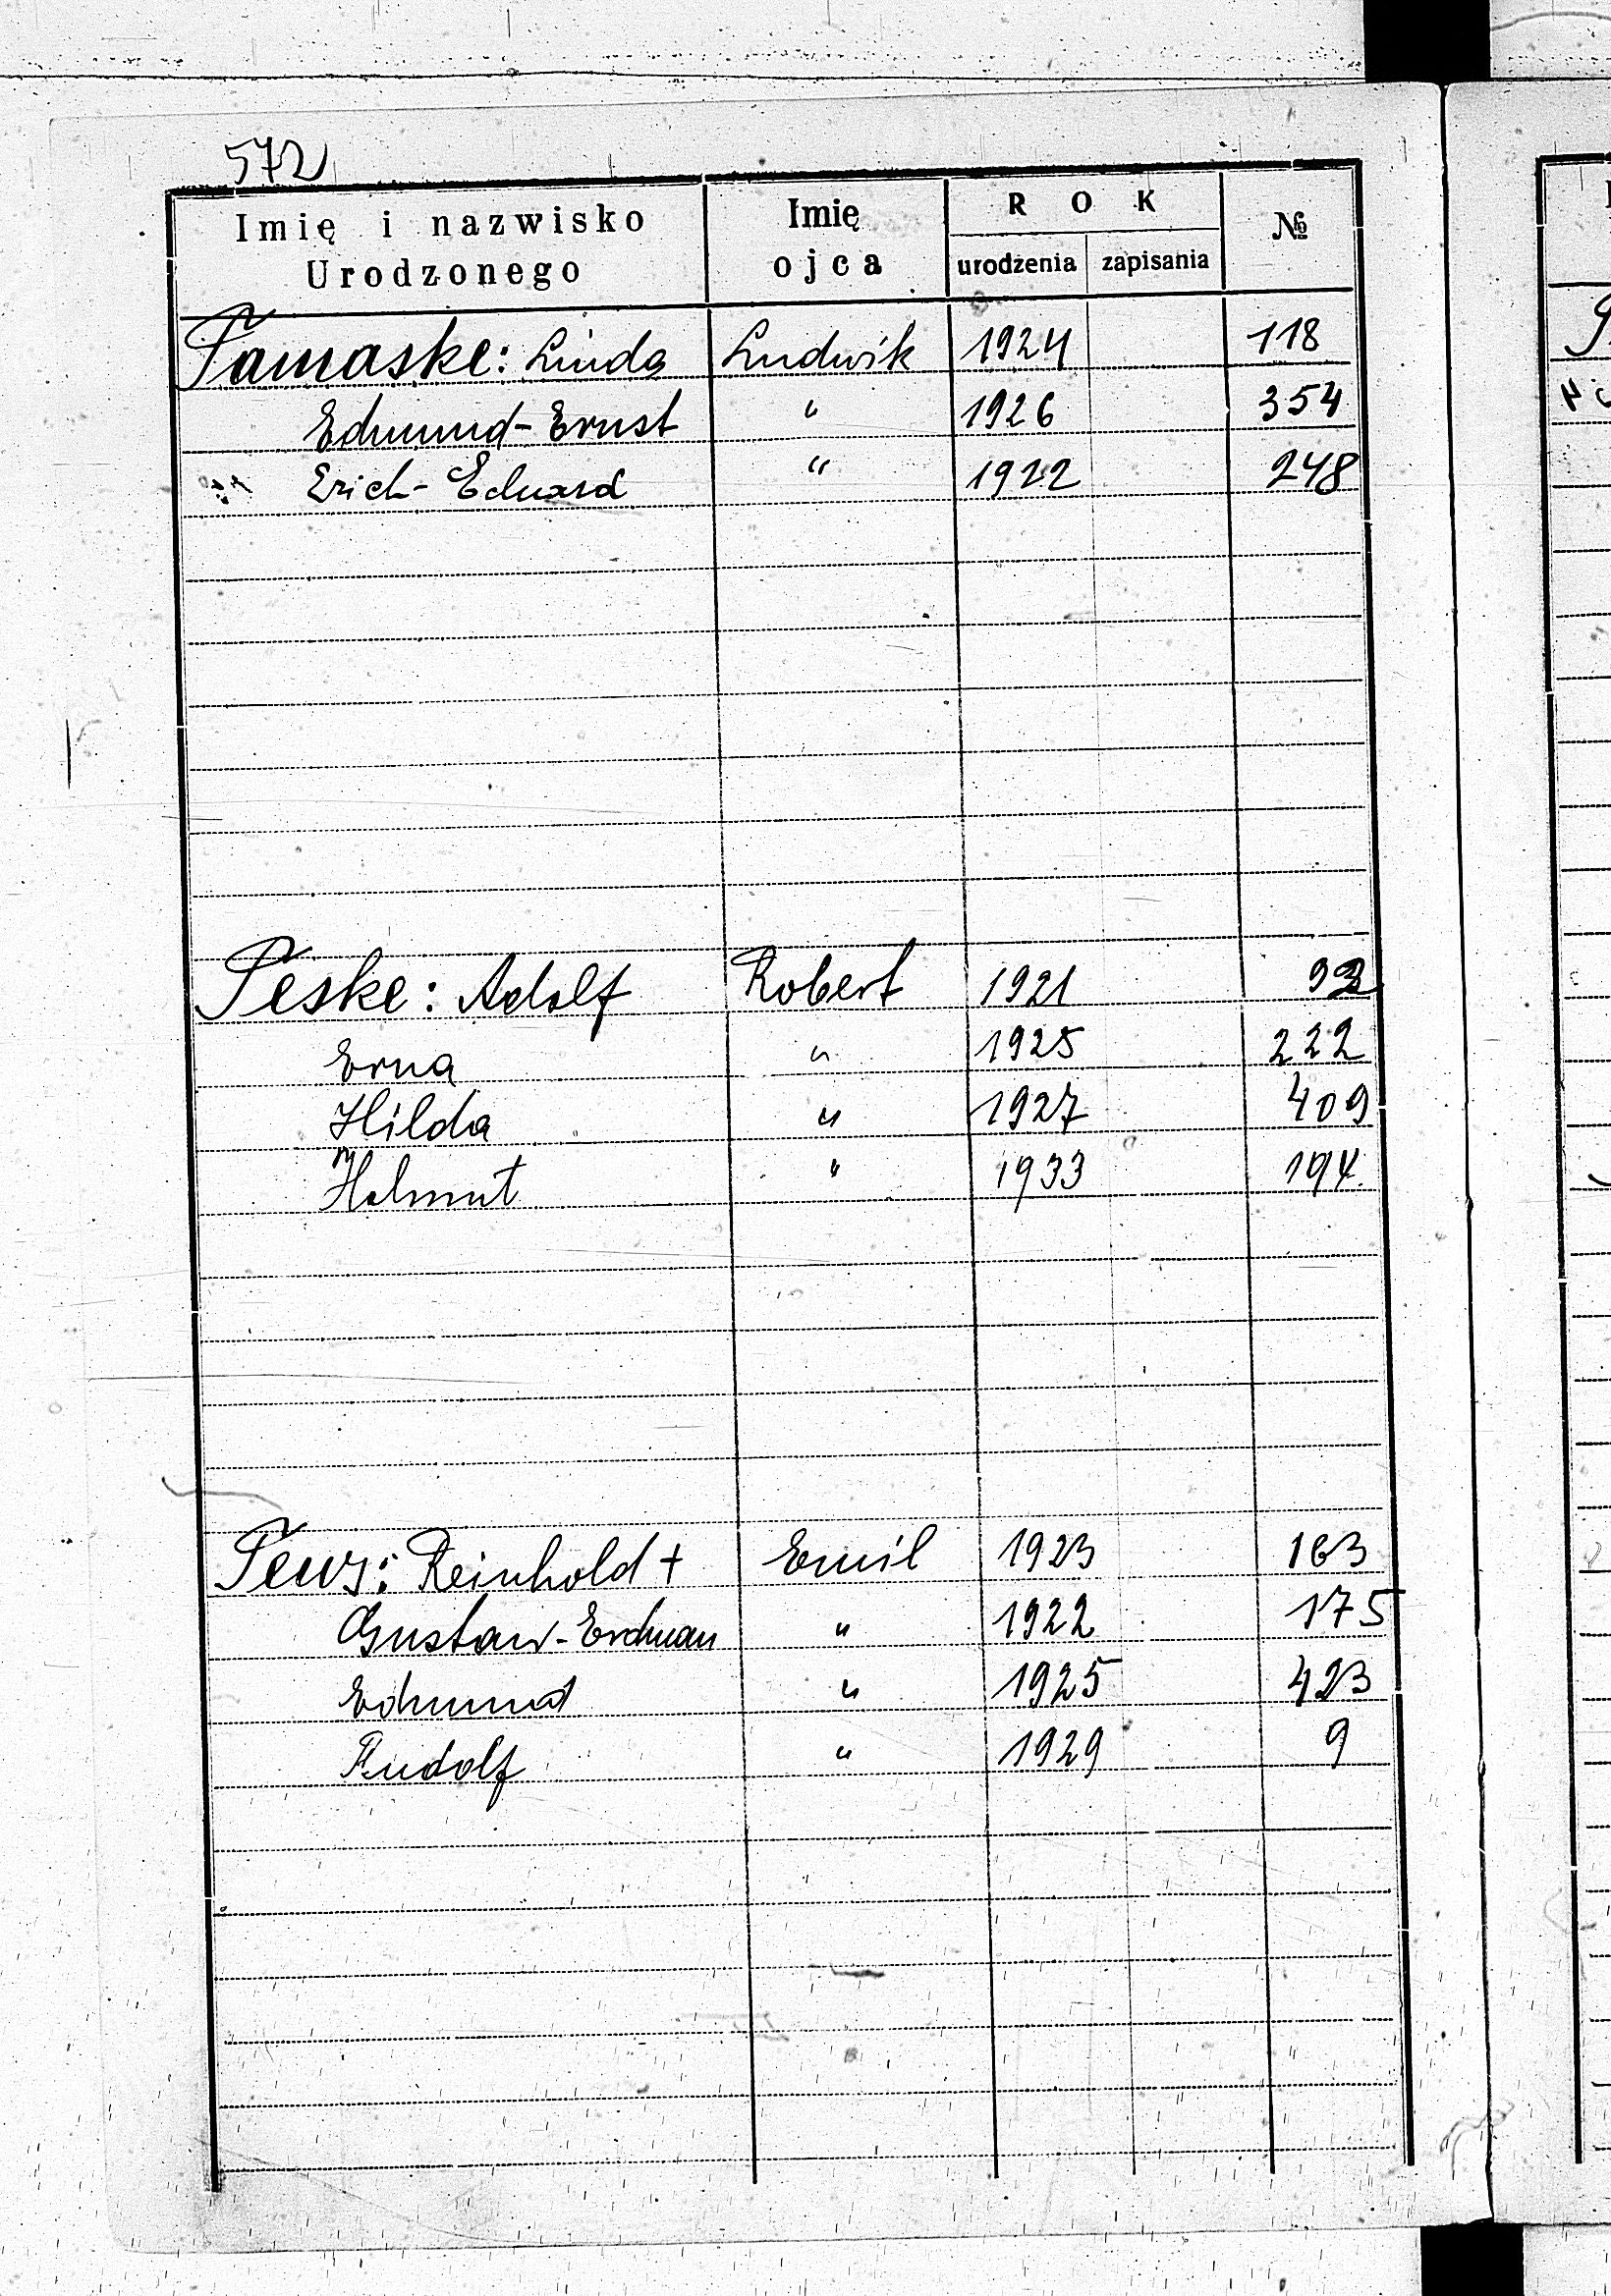 572
Imię i nazwisko Urodzonego | Imię ojca | ROK urodzenia | zapisania | №
Tamaske: Linda | Ludwik | 1924 | | 118
Edmund-Ernst | " | 1926 | | 354
Erich-Eduard | " | 1922 | | 248
Teske: Adolf | Robert | 1921 | | 92
Erna | " | 1925 | | 222
Hilda | " | 1927 | | 409
Helmut | " | 1933 | | 194
Tews: Reinhold + | Emil | 1923 | | 163
Gustaw-Erdman | " | 1922 | | 175
Edmund | " | 1925 | | 423
Rudolf | " | 1929 | | 9